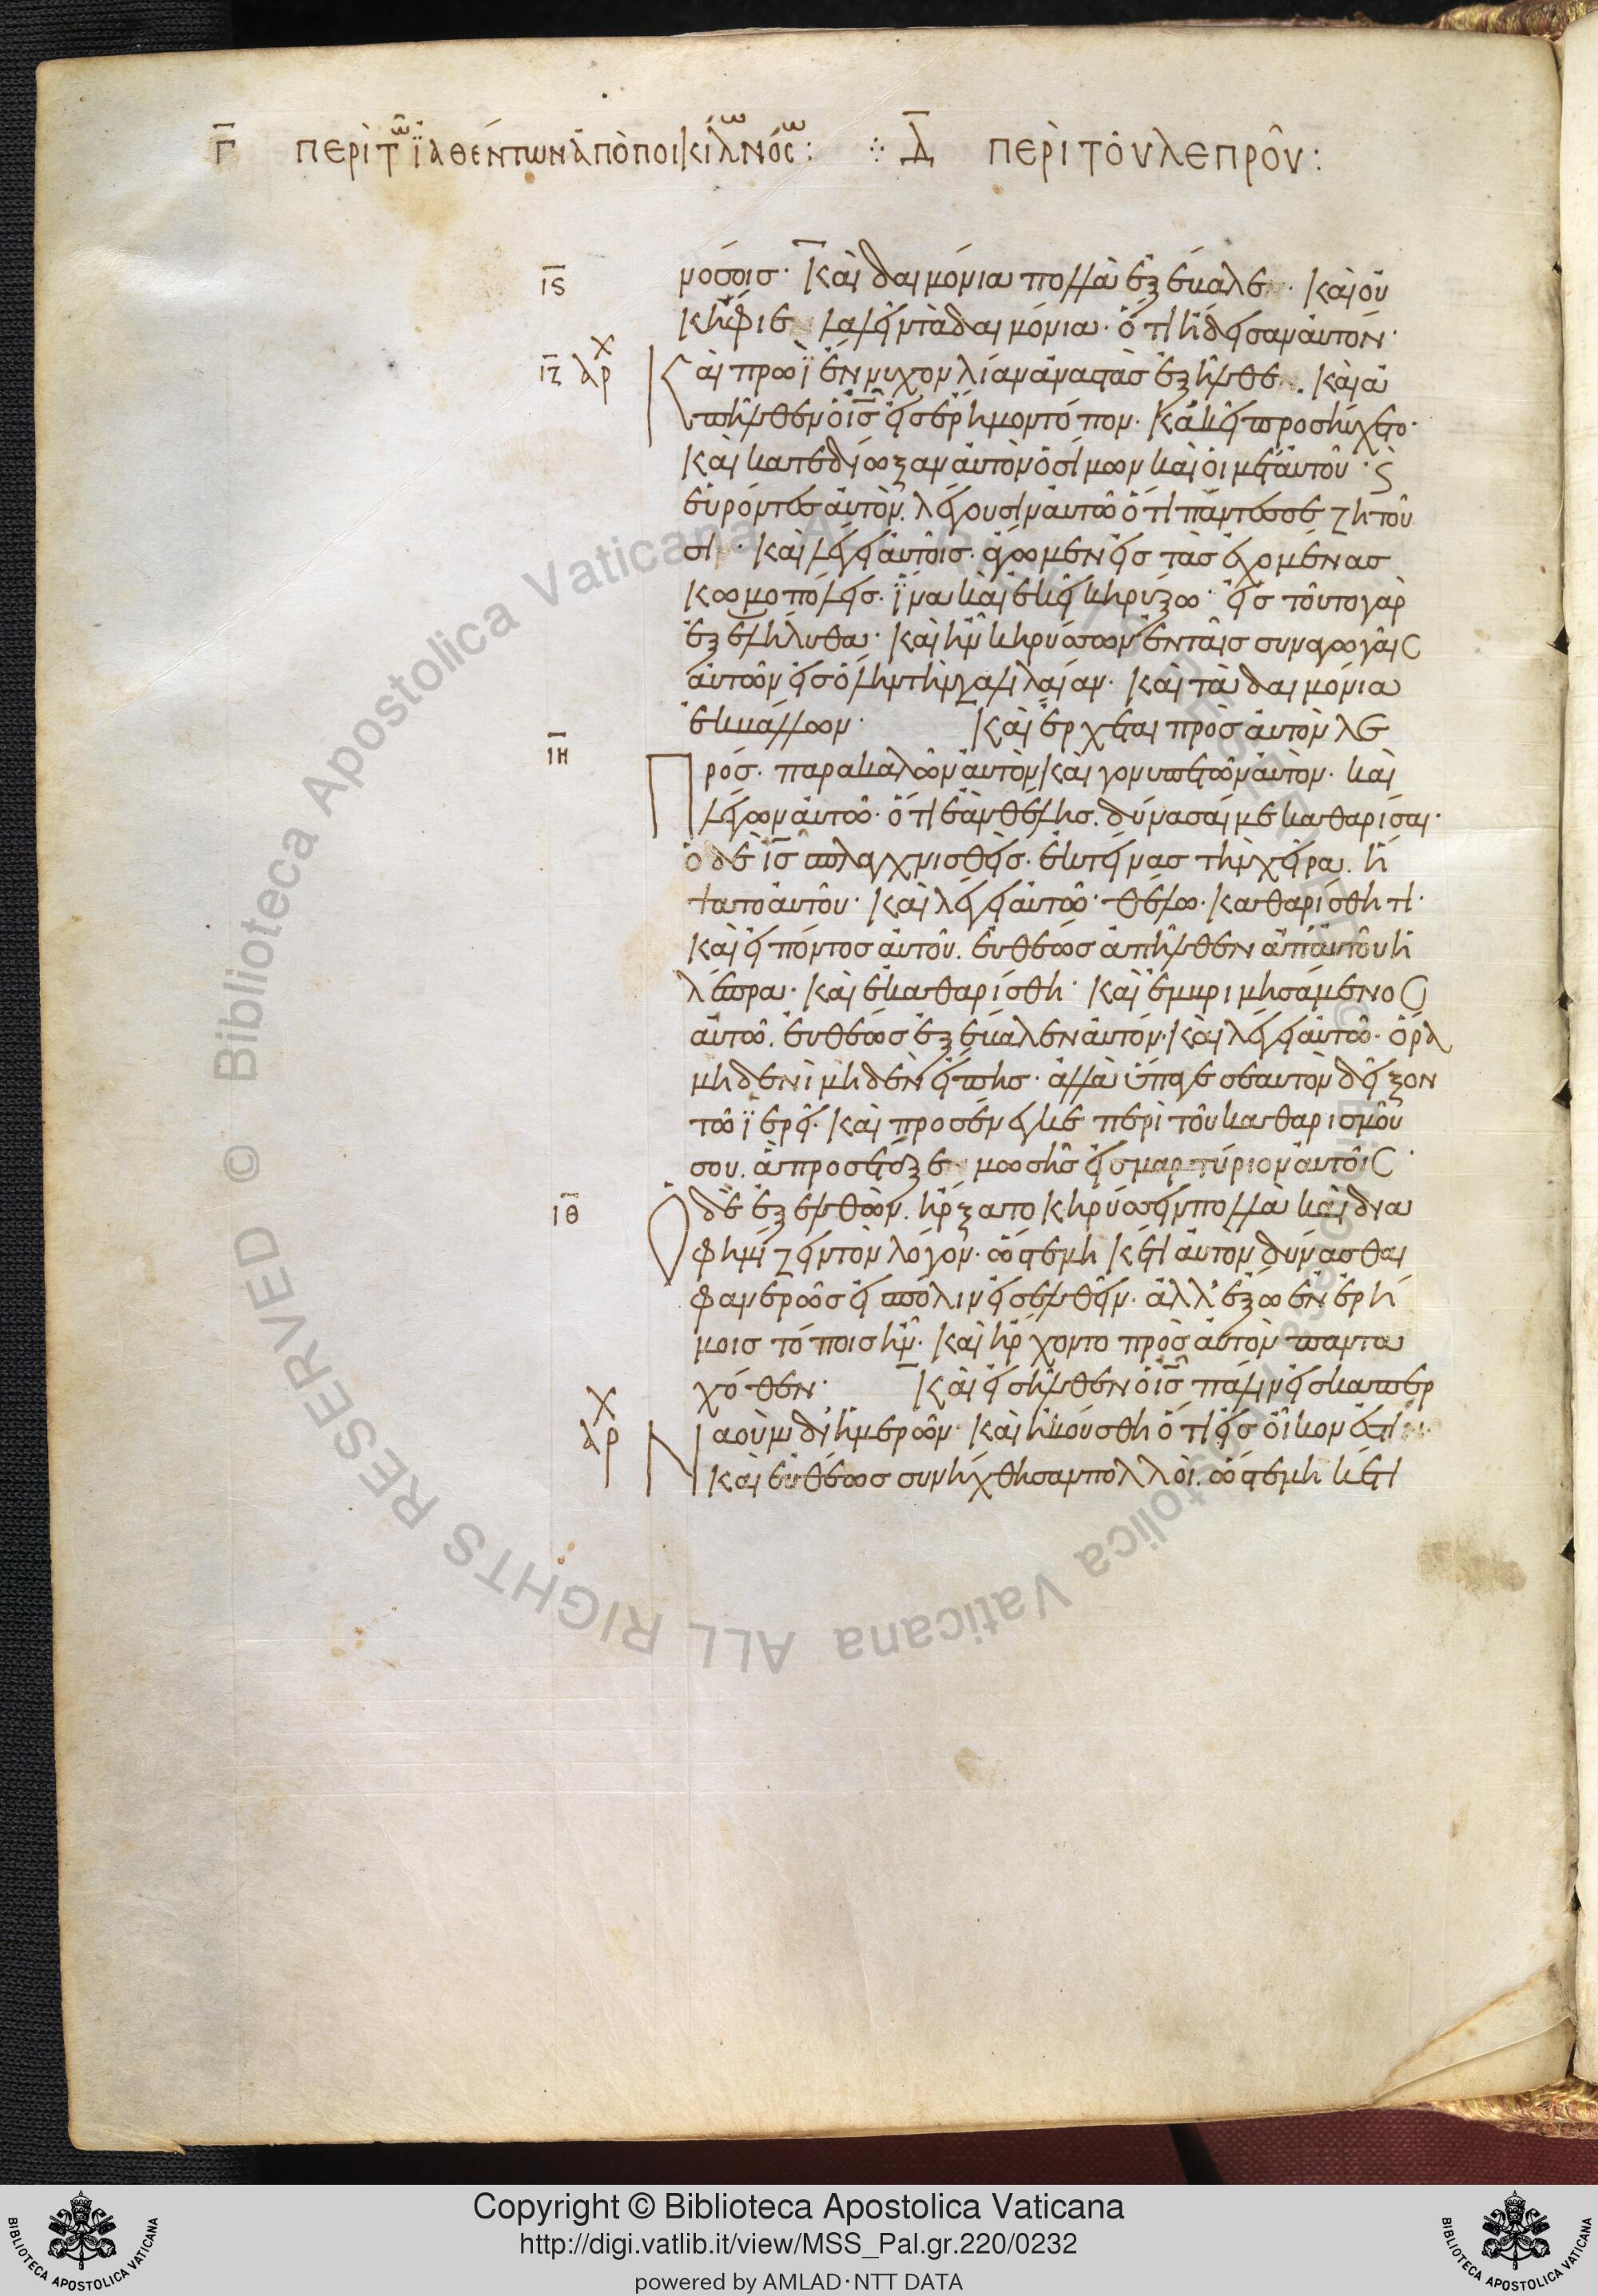 Γ ΠΕΡῚ ΤῶΝ ἸΑΘΈΝΤΩΝ ἈΠῸ ΠΟΙΚΊΛωΝ ΝΌCω: ⁘ Δ ΠΕΡῚ ΤΟῦ ΛΕΠΡΟῦ:
ΙϚ νόσοις· Καὶ δαιμόνια πολλὰ ἐξέβαλε· καὶ οὐ
κ ἤφιε λαλεῖν τὰ δαιμόνια· ὅτι ᾔδεισαν αὐτόν·
ΙΖ ἀρχ Καὶ πρωῒ ἔννυχον λίαν ἀναστὰς ἐξῆλθε. καὶ ἀ
πῆλθεν ὁ ις εἰς ἔρημον τόπον· κἀκεῖ προσηύχετο·
καὶ κατεδίωξαν αὐτὸν ὁ σίμων καὶ οἱ μετ' αὐτοῦ· ϗ
εὑρόντες αὐτὸν. λέγουσιν αὐτῶ ὅτι πάντες σε ζητοῦ
σι· καὶ λέγει αὐτοῖς· ἄγωμεν εἰς τὰς ἐχομένας
κωμοπόλεις· ἵνα καὶ ἐκεῖ κηρύξω· εἰς τοῦτο γὰρ
ἐξελήλυθα· καὶ ἦν κηρύσσων ἐν ταῖς συναγωγαῖς
αὐτῶν εἰς ὅλην τὴν γαλιλαίαν· καὶ τὰ δαιμόνια
ἐκβάλλων· Καὶ ἔρχεται πρὸς αὐτὸν λε
ΙΗ Πρός· παρακαλῶν αὐτὸν καὶ γονυπετῶν αὐτὸν· καὶ
λέγων αὐτῶ· ὅτι ἐὰν θέλης. δύνασαί με καθαρίσαι·
ὁ δὲ ις σπλαγχνισθεὶς· ἐκτείνας τὴν χεῖρα. ἥ
ψατο αὐτοῦ· καὶ λέγει αὐτῶ· θέλω· καθαρίσθητι·
καὶ εἰπόντος αὐτοῦ. εὐθέως ἀπῆλθεν ἀπ' αὐτοῦ ἡ
λέπρα· καὶ ἐκαθαρίσθη· καὶ ἐμβριμησάμενος
αὐτῶ. εὐθέως ἐξέβαλεν αὐτόν· καὶ λέγει αὐτῶ· ὅρα
μηδενὶ μηδὲν εἴπης· ἀλλὰ ὕπαγε σεαυτὸν δεῖξον
τῶ ἱερεῖ· καὶ προσένεγκε περὶ τοῦ καθαρισμοῦ
σου. ἃ προσέταξε μωσῆς εἰς μαρτύριον αὐτοῖς·
ΙΘ Ὁ δὲ ἐξελθὼν. ἤρξατο κηρύσσειν πολλὰ καὶ δια
φημίζειν τὸν λόγον· ὥστε μηκέτι αὐτὸν δύνασθαι
φανερῶς εἰς πόλιν εἰσελθεῖν· ἀλλ' ἔξω ἐν ἐρή
μοις τόποις ἦν· καὶ ἤρχοντο πρὸς αὐτὸν παντα
χόθεν· Καὶ εἰσῆλθεν ὁ ις πάλιν εἰς καπερ
ἀρχ Ναοὺμ δι' ἡμερῶν· καὶ ἠκούσθη ὅτι εἰς οἶκον ἐστί·
καὶ εὐθέως συνήχθησαν πολλοὶ. ὥστε μηκέτι
© Biblioteca Apostolica Vaticana ALL RIGHTS RESERVED
Copyright © Biblioteca Apostolica Vaticana
http://digi.vatlib.it/view/MSS_Pal.gr.220/0232
powered by AMLAD·NTT DATA
BIBLIOTECA APOSTOLICA VATICANA
BIBLIOTECA APOSTOLICA VATICANA